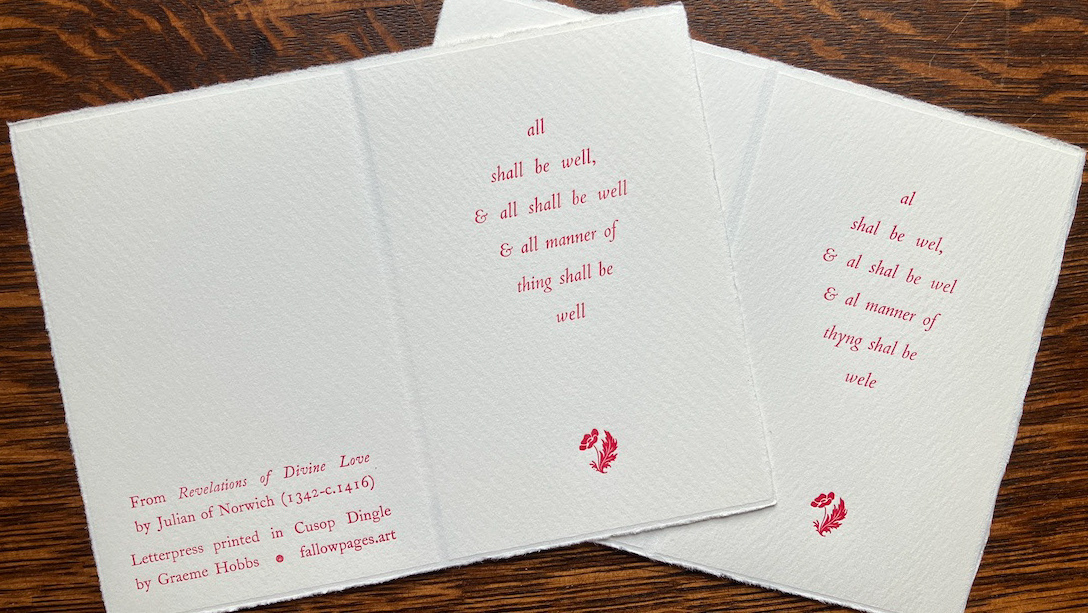 all
shall be well,
& all shall be well
& all manner of
thing shall be
well
From Revelations of Divine Love
by Julian of Norwich (1342-c.1416)
Letterpress printed in Cusop Dingle
by Graeme Hobbs fallowpages.art
al
shal be wel,
& al shal be wel
& al manner of
thyng shal be
wele